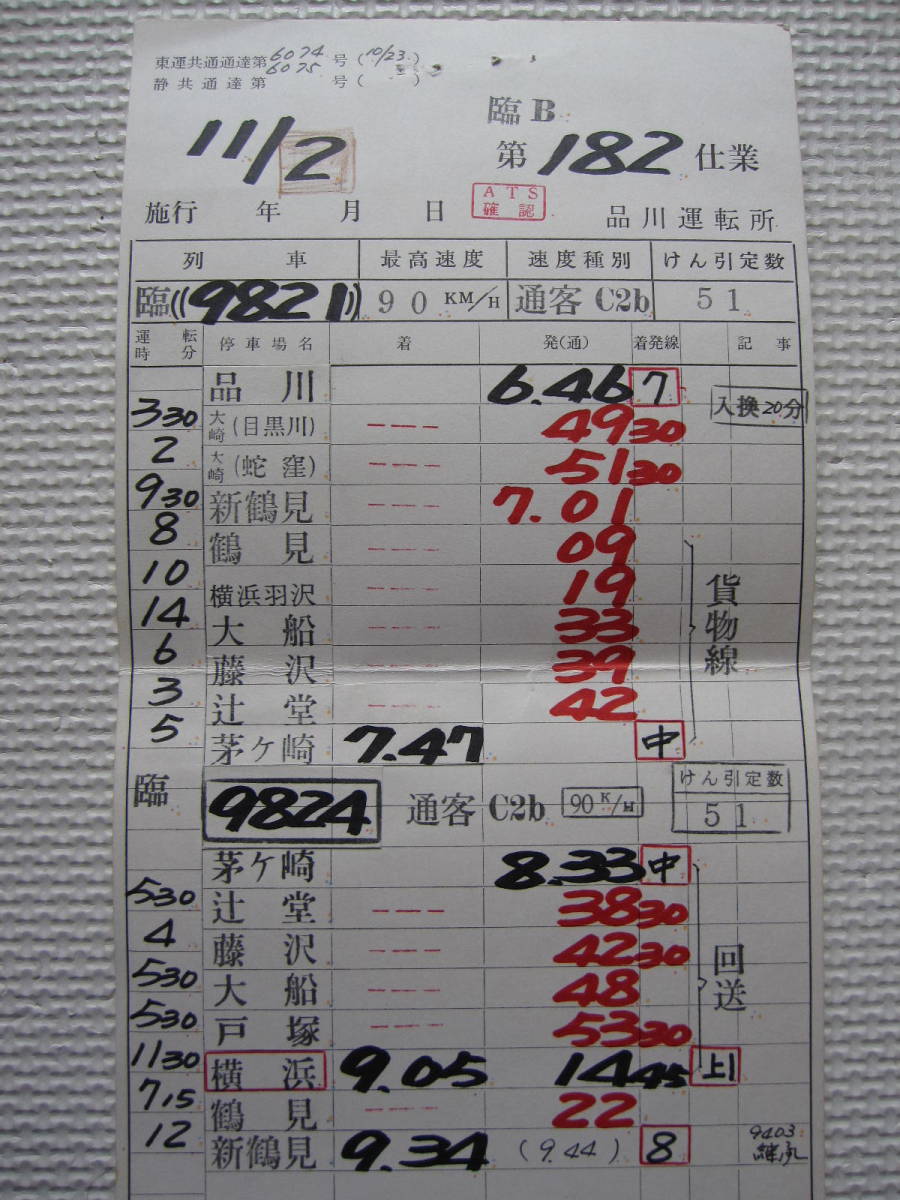 東運共通通達第6074号(10/23.)
静共通達第6075号( )
臨B
11/2 第182仕業
施行 年 月 日 ATS確認 品川運転所
列車 最高速度 速度種別 けん引定数
臨((9821)) 90KM/H 通客C2b 51
運転時分 停車場名 着 発(通) 着発線 記事
品川 6.46 7 入換20分
330 大崎(目黒川) --- 4930
2 大崎(蛇窪) --- 5130
930 新鶴見 --- 7.01
8 鶴見 --- 09
10 横浜羽沢 --- 19 貨物線
14 大船 --- 33
6 藤沢 --- 39
3 辻堂 --- 42
5 茅ケ崎 7.47 中
臨 9824 通客C2b 90K/H けん引定数 51
茅ケ崎 8.33 中
530 辻堂 --- 3830
4 藤沢 --- 4230 回送
530 大船 --- 48
530 戸塚 --- 5330
1130 横浜 9.05 1445 上1
715 鶴見 --- 22
12 新鶴見 9.34 (9.44) 8 9403